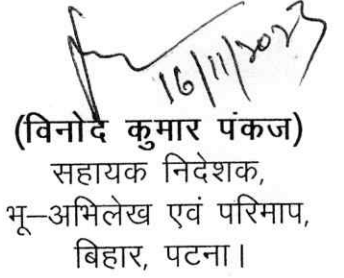 16/11/2023
(विनोद कुमार पंकज)
सहायक निदेशक,
भू–अभिलेख एवं परिमाप,
बिहार, पटना।